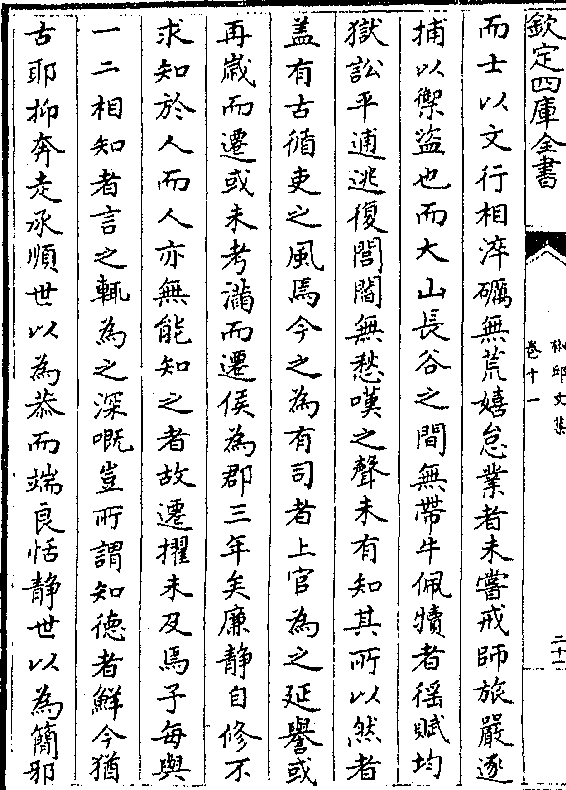 欽定四庫全書
卷十一
二十一
而士以文行相淬礪無荒嬉怠業者未嘗戒師旅嚴逐
捕以禦盜也而大山長谷之間無帶牛佩犢者徭賦均
獄訟平逋逃復閭閻無愁嘆之聲未有知其所以然者
盖有古循吏之風焉今之為有司者上官為之延譽或
再歲而遷或未考滿而遷侯為郡三年矣廉静自修不
求知於人而人亦無能知之者故遷擢未及焉子每與
一二相知者言之輒為之深嘅豈所謂知德者鮮今猶
古耶抑奔走承順世以為恭而端良恬静世以為簡邪